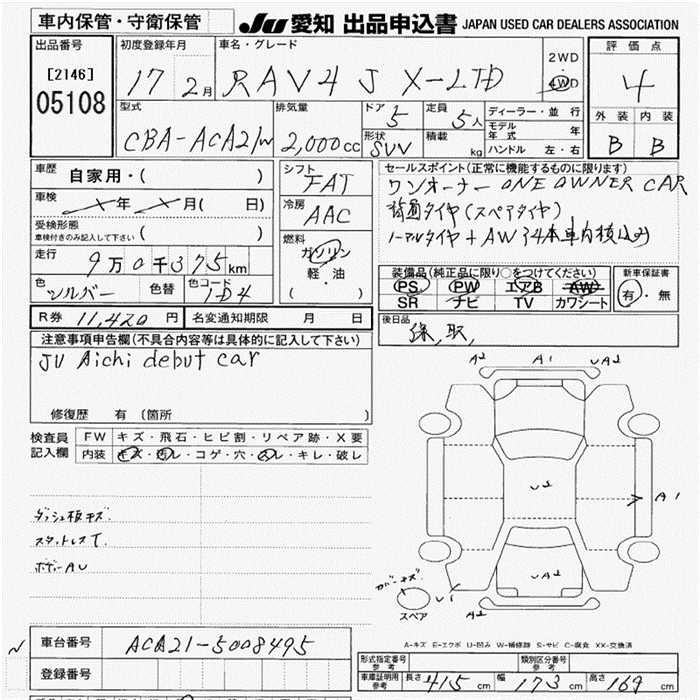 車内保管・守衛保管
JU 愛知 出品申込書 JAPAN USED CAR DEALERS ASSOCIATION
出品番号 初度登録年月 車名・グレード 評価点
[2146]
05108
17 2月 RAV4 J X-LTD 2WD 4WD 4
型式 排気量 ドア 定員 ディーラー・並行 外装 内装
CBA-ACA21W 2,000cc 5 5人 モデル年式 年 B B
形状 SUV 積載 kg ハンドル 左・右
車歴 自家用・( ) シフト FAT セールスポイント(正常に機能するものに限ります)
ワンオーナー ONE OWNER CAR
車検 年 月( 日) 冷房 AAC
背面タイヤ(スペアタイヤ)
受検形態 車検付きのみ記入して下さい ( )
ノーマルタイヤ+AW 4本車内積込み
走行 9万0千375km 燃料 ガソリン 軽・油 ( )
装備品(純正品に限り○をつけてください) 新車保証書
色 シルバー 色替 色コード 1D4
PS PW エアB AW 有・無
SR ナビ TV カワシート
R券 11,420円 名変通知期限 月 日
後日品 保,取,
注意事項申告欄(不具合内容等は具体的に記入して下さい)
JU Aichi debut car
修復歴 有(箇所
検査員 記入欄
FW キズ・飛石・ヒビ割・リペア跡・X要
内装 キズ・汚レ・コゲ・穴・スレ・キレ・破レ
A2 A1 UA2
U2
A1
UA2
ダッシュ板キズ
スタットレスT
ボデーAU
U1
A2
スペア
A-キズ E-エクボ U-凹み W-補修跡 S-サビ C-腐食 XX-交換済
車台番号 ACA21-5008495
登録番号
形式指定番号 参考 類別区分番号 参考
車庫証明用 参考 長さ 415cm 幅 173cm 高さ 169cm